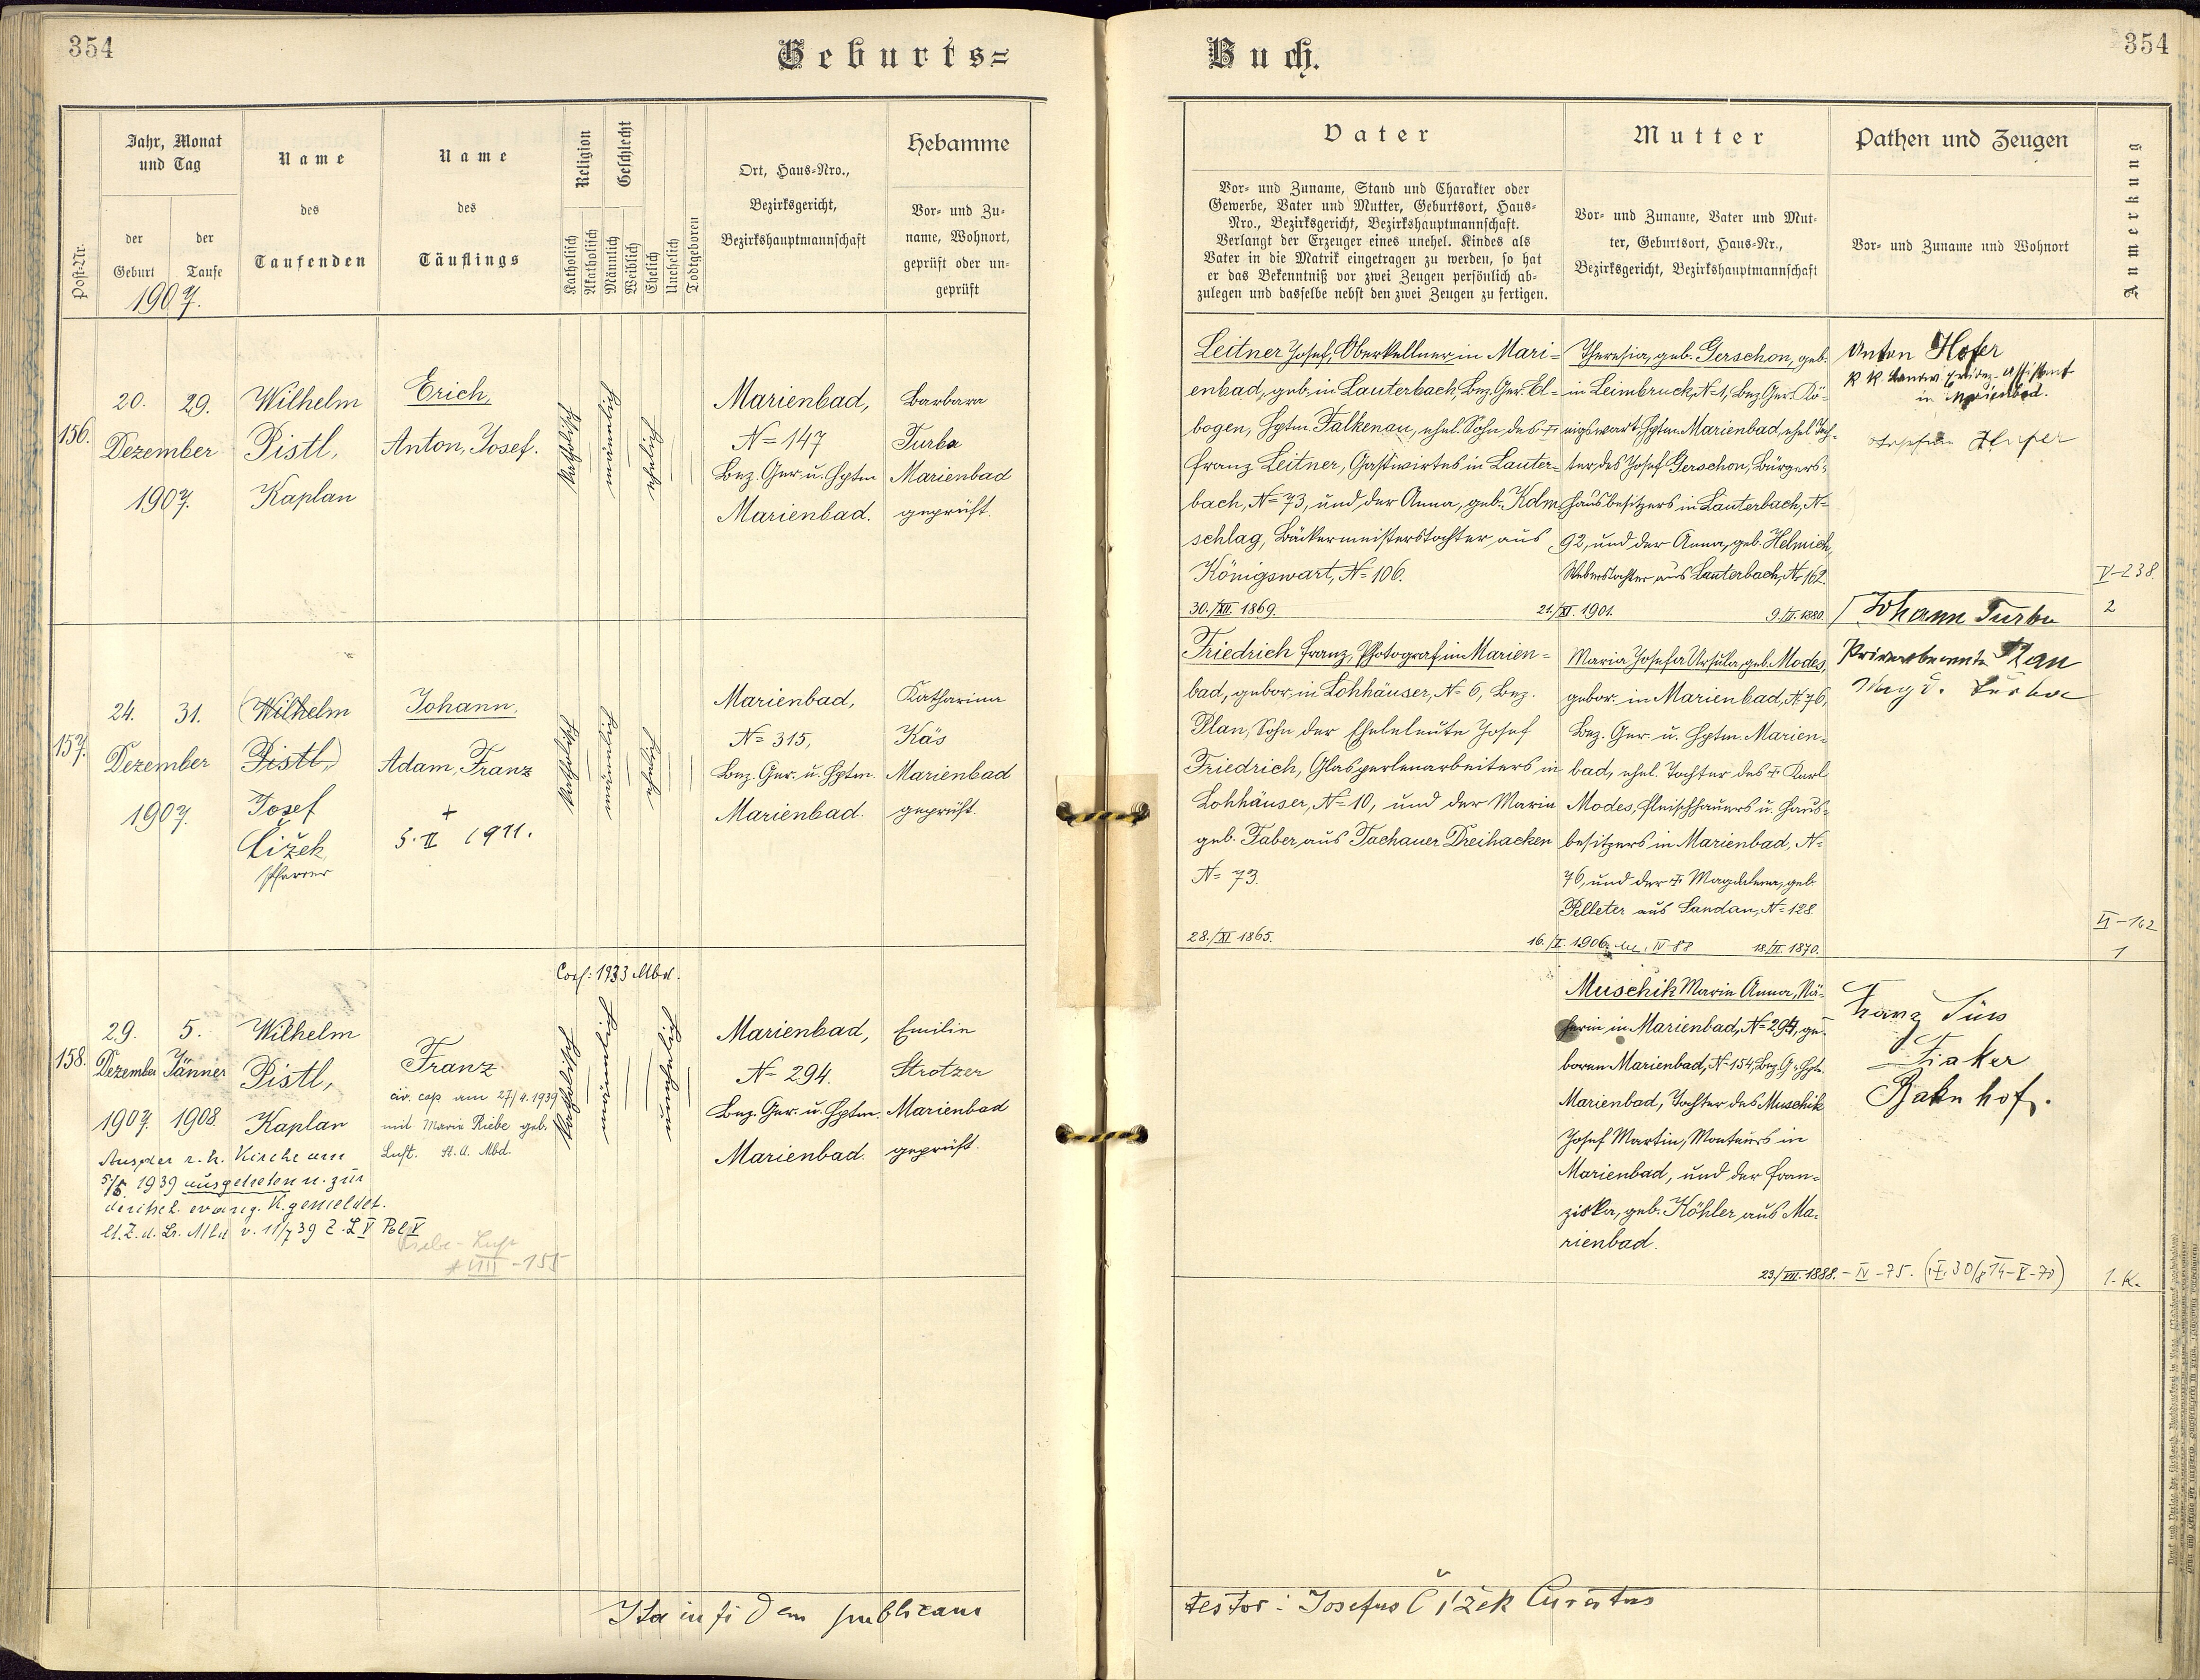 354
Geburts=
Buch.
354
Post-Nr.
Jahr, Monat
und Tag
der
Geburt
der
Taufe
1907.
Name
des
Taufenden
Name
des
Täuflings
Religion
Katholisch
Akatholisch
Geschlecht
Männlich
Weiblich
Ehelich
Unehelich
Todtgeboren
Ort, Haus-Nro.,
Bezirksgericht,
Bezirkshauptmannschaft
Hebamme
Vor- und Zu-
name, Wohnort,
geprüft oder un-
geprüft
Vater
Vor- und Zuname, Stand und Charakter oder
Gewerbe, Vater und Mutter, Geburtsort, Haus-
Nro., Bezirksgericht, Bezirkshauptmannschaft.
Verlangt der Erzeuger eines unehel. Kindes als
Vater in die Matrik eingetragen zu werden, so hat
er das Bekenntniß vor zwei Zeugen persönlich ab-
zulegen und dasselbe nebst den zwei Zeugen zu fertigen.
Mutter
Vor- und Zuname, Vater und Mut-
ter, Geburtsort, Haus-Nr.,
Bezirksgericht, Bezirkshauptmannschaft
Pathen und Zeugen
Vor- und Zuname und Wohnort
Anmerkung
156.
20. 29.
Dezember
1907.
Wilhelm
Pistl,
Kaplan
Erich,
Anton, Josef.
katholisch
männlich
ehelich
Marienbad,
N= 147
Bez. Ger. u. Hptm
Marienbad.
Barbara
Turba
Marienbad
geprüft.
Leitner Josef, Oberkellner in Mari=
enbad, geb. in Lauterbach, Bez. Ger. El=
bogen, Hptm. Falkenau, ehel. Sohn des †
Franz Leitner, Gastwirtes in Lauter=
bach, N= 73, und der Anna, geb. Kolm
schlag, Bäckermeisterstochter aus
Königswart, N= 106.
30./XII. 1869.
21./XI. 1901.
Theresia, geb. Gerschon, geb.
in Leimbruck, N= 1, Bez. Ger. Kö=
nigswart, Hptm. Marienbad, ehel. Toch=
ter des Josef Gerschon, Bürgers=
hausbesitzers in Lauterbach, N=
92, und der Anna, geb. Helmich,
Weberstochter aus Lauterbach, N= 162.
9./II. 1880.
Anton Hofer
in Marienbad.
Hofer
V-238.
2
157.
24. 31.
Dezember
1907.
(Wilhelm
Pistl,)
Josef
Čížek
Pfarrer
Johann,
Adam, Franz
+
5. II 1911.
katholisch
männlich
ehelich
Marienbad,
N= 315,
Bez. Ger. u. Hptm.
Marienbad.
Katharina
Käs
Marienbad
geprüft.
Friedrich Franz, Photograf in Marien=
bad, gebor. in Lohhäuser, N= 6, Bez.
Plan, Sohn der Eheleleute Josef
Friedrich, Glasperlenarbeiters in
Lohhäuser, N= 10, und der Maria
geb. Faber aus Tachauer Dreihacken
N= 73.
28./XI 1865.
16./I. 1906. IV-88
Maria Josefa Ursula, geb. Modes,
gebor. in Marienbad, N. 76,
Bez. Ger. u. Hptm. Marien=
bad, ehel. Tochter des † Karl
Modes, Fleischhauers u. Haus=
besitzers in Marienbad, N=
76, und der † Magdalena, geb.
Pelleter aus Sandau, N= 128
18./II. 1870.
Johann Turba
Privatbeamte Plan
Magd. Turba
II-162
1
158.
29. 5.
Dezember Jänner
1907. 1908.
Wilhelm
Pistl,
Kaplan
Franz
civ. cop am 27/4. 1939
mit Maria Riebe geb.
Luft. St. A. Mbd.
Aus der r. k. Kirche am
5/5. 1939 ausgetreten u. zur
deutsch. evang. K. gemeldet.
Conf: 1933 Mbd.
katholisch
männlich
unehelich
Marienbad,
N= 294.
Bez. Ger. u. Hptm.
Marienbad.
Emilie
Strotzer
Marienbad
geprüft.
Muschik Marie Anna, Nä=
herin in Marienbad, N= 294, ge=
boren Marienbad, N= 154, Bez. G. u. Hptm.
Marienbad, Tochter des Muschik
Josef Martin, Monteurs in
Marienbad, und der Fran=
ziska, geb. Köhler aus Ma=
rienbad.
23./VII. 1888. - IV - 75.
Franz Süss
Fiaker
Bahnhof.
1. K.
Ita in fidem publicam
testor: Josefus Čížek Curatus